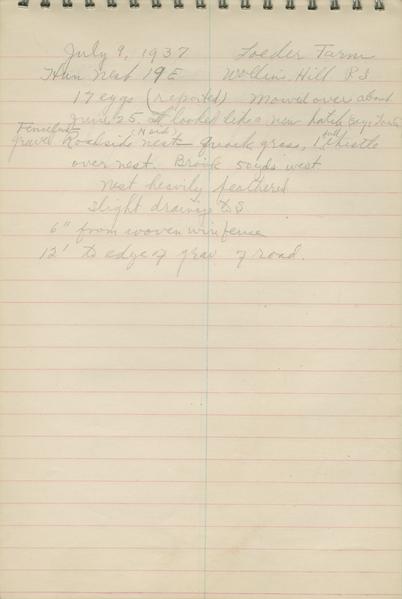 July 9, 1937 Loeder Farm
Hun Nest 19E Wollin's Hill P3
17 eggs (reported) Mowed over about
June 25. It looked like a new hatch says
Fencelined
gravel Roadside nest - quack grass, 1 tall thistle
over nest. Brook 50 yds west
nest heavily feathered
slight drainage to S
6" from woven wire fence
12' to edge of grav of road.